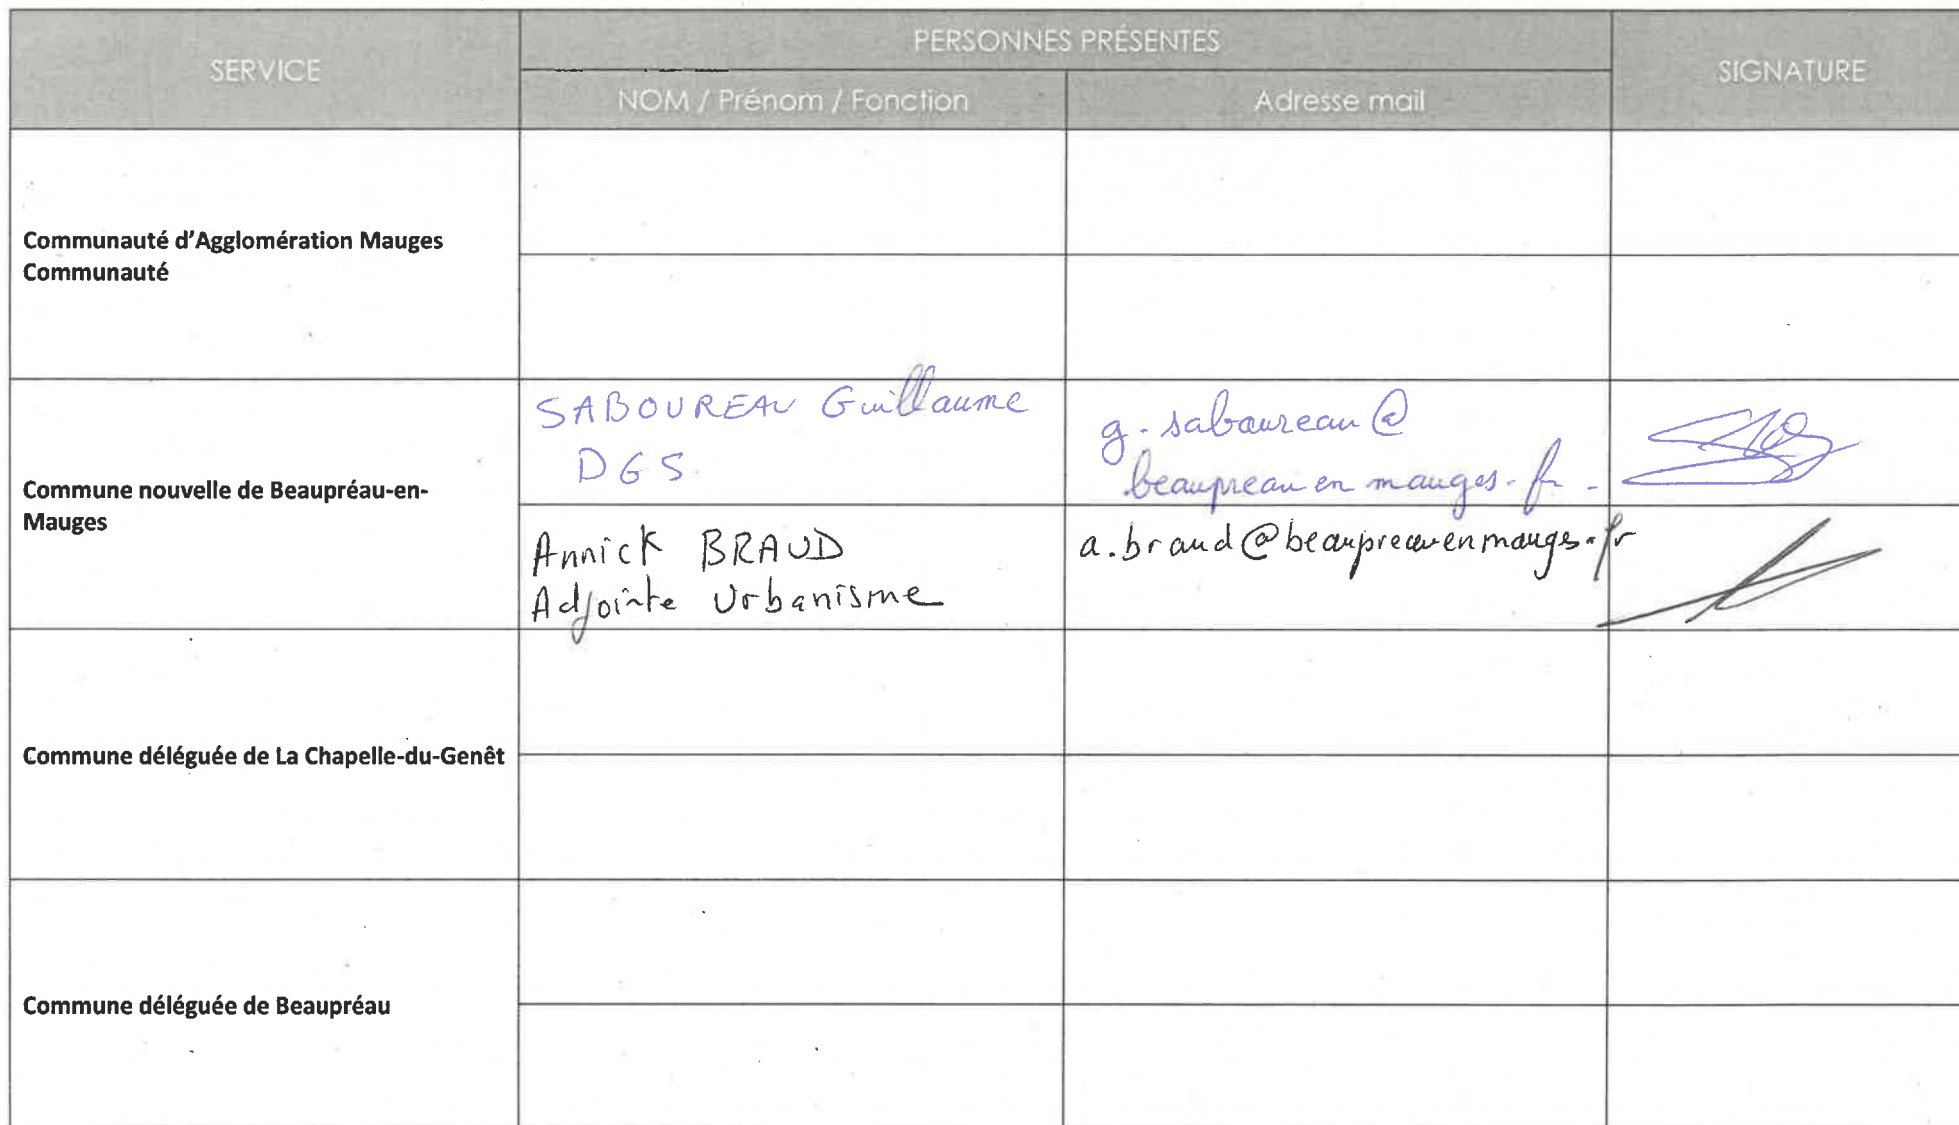 SERVICE
PERSONNES PRÉSENTES
SIGNATURE
NOM / Prénom / Fonction
Adresse mail
Communauté d'Agglomération Mauges
Communauté
SABOUREAU Guillaume
DGS
g.saboureau@
beaupreauenmauges.fr
Commune nouvelle de Beaupréau-en-
Mauges
Annick BRAUD
Adjointe Urbanisme
a.braud@beaupreauenmauges.fr
Commune déléguée de La Chapelle-du-Genêt
Commune déléguée de Beaupréau